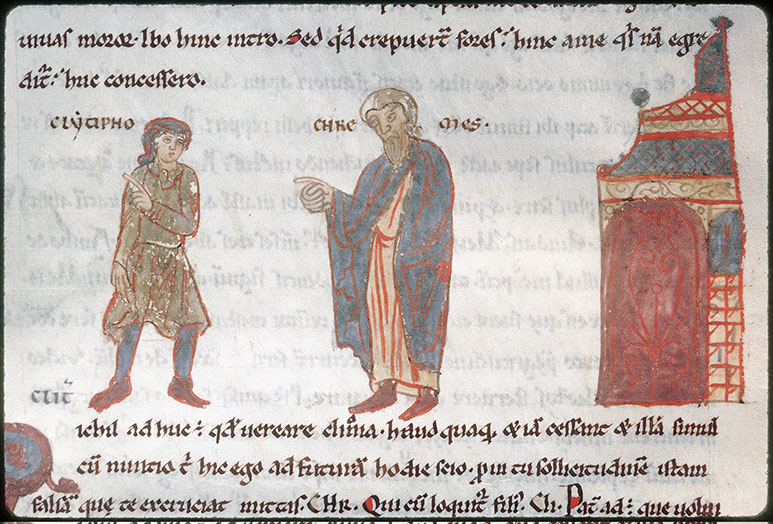 uiuas moror. Ibo hinc intro. Sed qd crepuert fores? hinc a me qs nā egre
dit? huc concessero.
CLYTIPHO CHRE MES.
CLIT
ichil adhuc? qd uereare clinia. haud quaq etiā cessant & illā simul
cū nuntio t hic ego adfuturā hodie scio. proin tu sollicitudinē istam
falsā que te excruciat mittas. CHR. Qui cū loquit fili. CL. Pat ad? que uolui